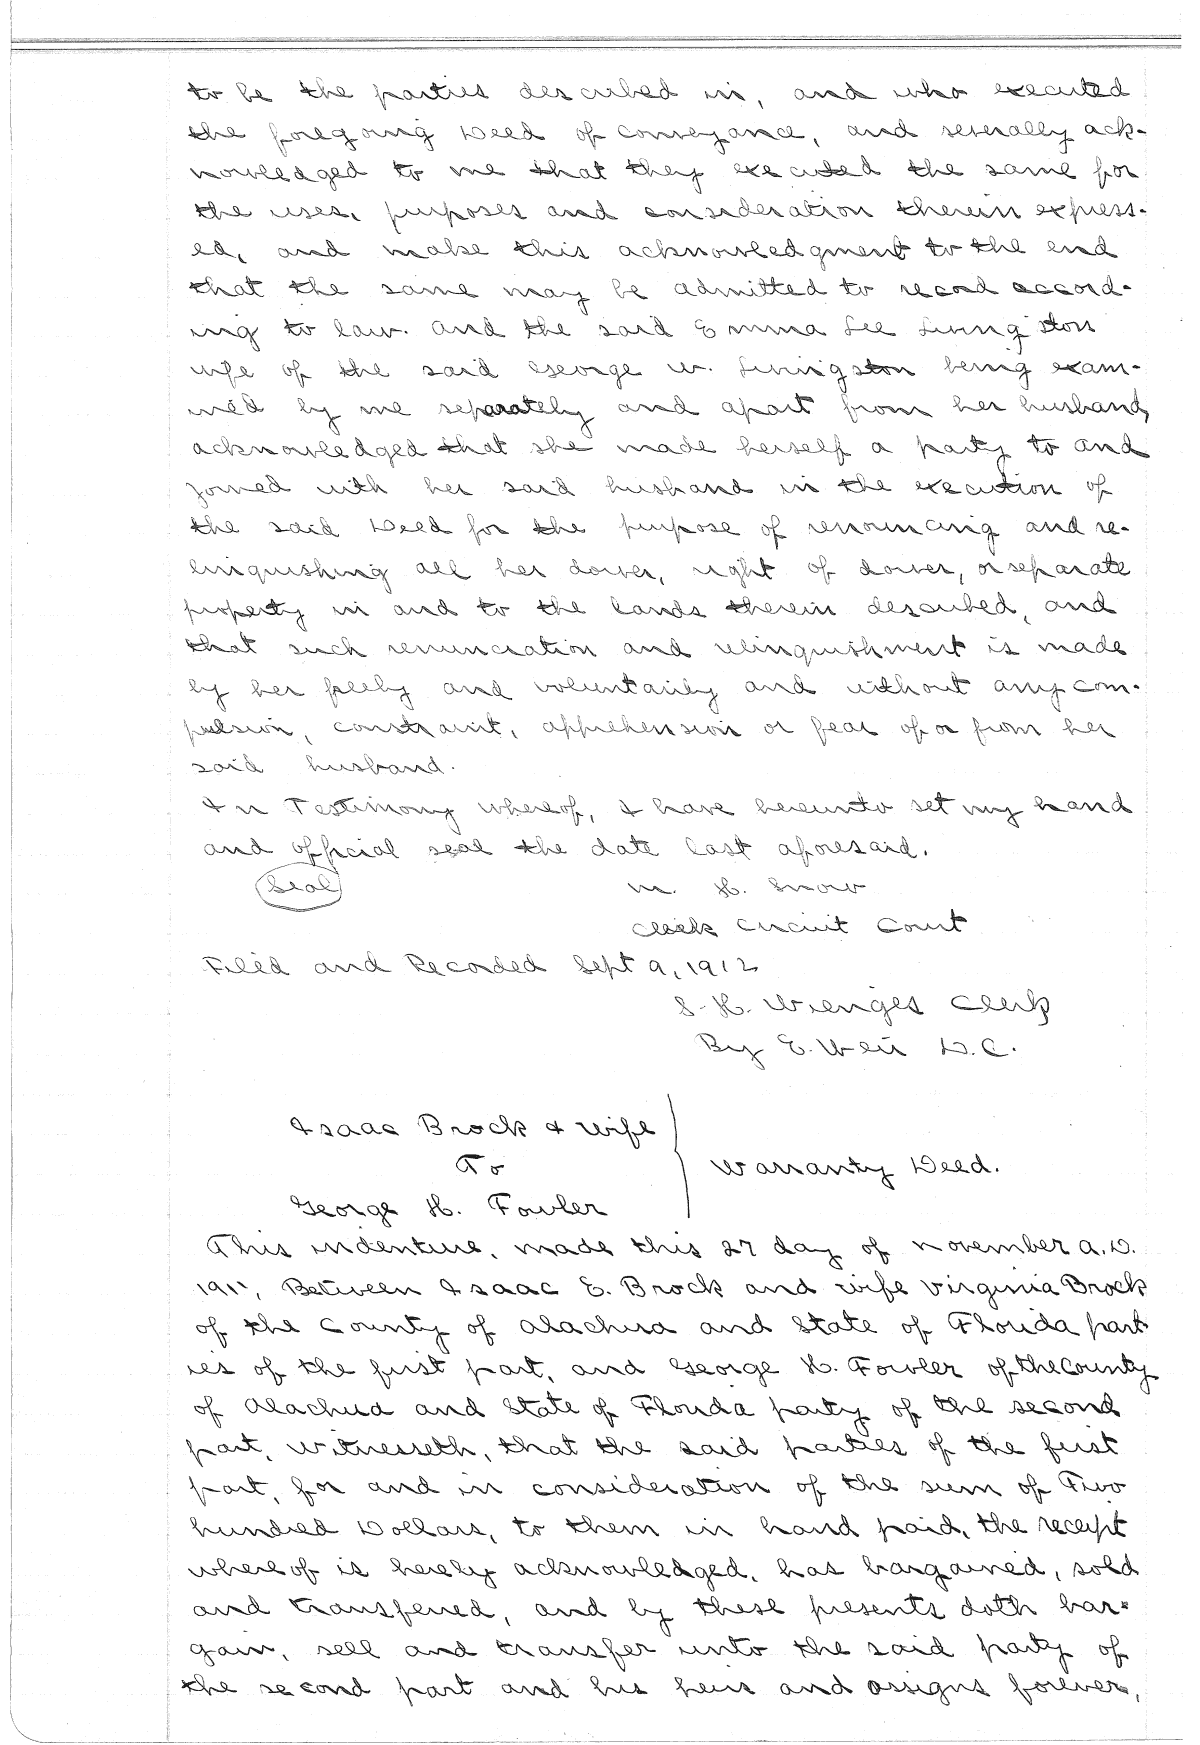 to be the parties described in, and who executed
the foregoing Deed of conveyance, and severally ack-
nowledged to me that they executed the same for
the uses, purposes and consideration therein express-
ed, and make this acknowledgment to the end
that the same may be admitted to record accord-
ing to law. and the said Emma Lee Livingston
wife of the said George W. Livingston being exam-
ined by me separately and apart from her husband,
acknowledged that she made herself a party to and
joined with her said husband in the execution of
the said Deed for the purpose of renouncing and re-
linquishing all her dower, right of dower, or separate
property in and to the lands therein described, and
that such renunciation and relinquishment is made
by her freely and voluntarily and without any com-
pulsion, constraint, apprehension or fear of or from her
said husband.
In Testimony whereof, I have hereunto set my hand
and official seal the date last aforesaid.
(Seal) M. H. Snow
Clerk Circuit Court
Filed and Recorded Sept 9, 1912
S. H. Wienges Clerk
By E. Weir D.C.
Isaac Brock & wife
To
Warranty Deed.
George H. Fowler
This indenture, made this 27 day of November A.D.
1911, Between Isaac E. Brock and wife Virginia Brock
of the County of Alachua and State of Florida part
ies of the first part, and George H. Fowler of the County
of Alachua and State of Florida party of the second
part, witnesseth, that the said parties of the first
part, for and in consideration of the sum of Two
hundred Dollars, to them in hand paid, the receipt
whereof is hereby acknowledged, has bargained, sold
and transferred, and by these presents doth bar-
gain, sell and transfer unto the said party of
the second part and his heirs and assigns forever,